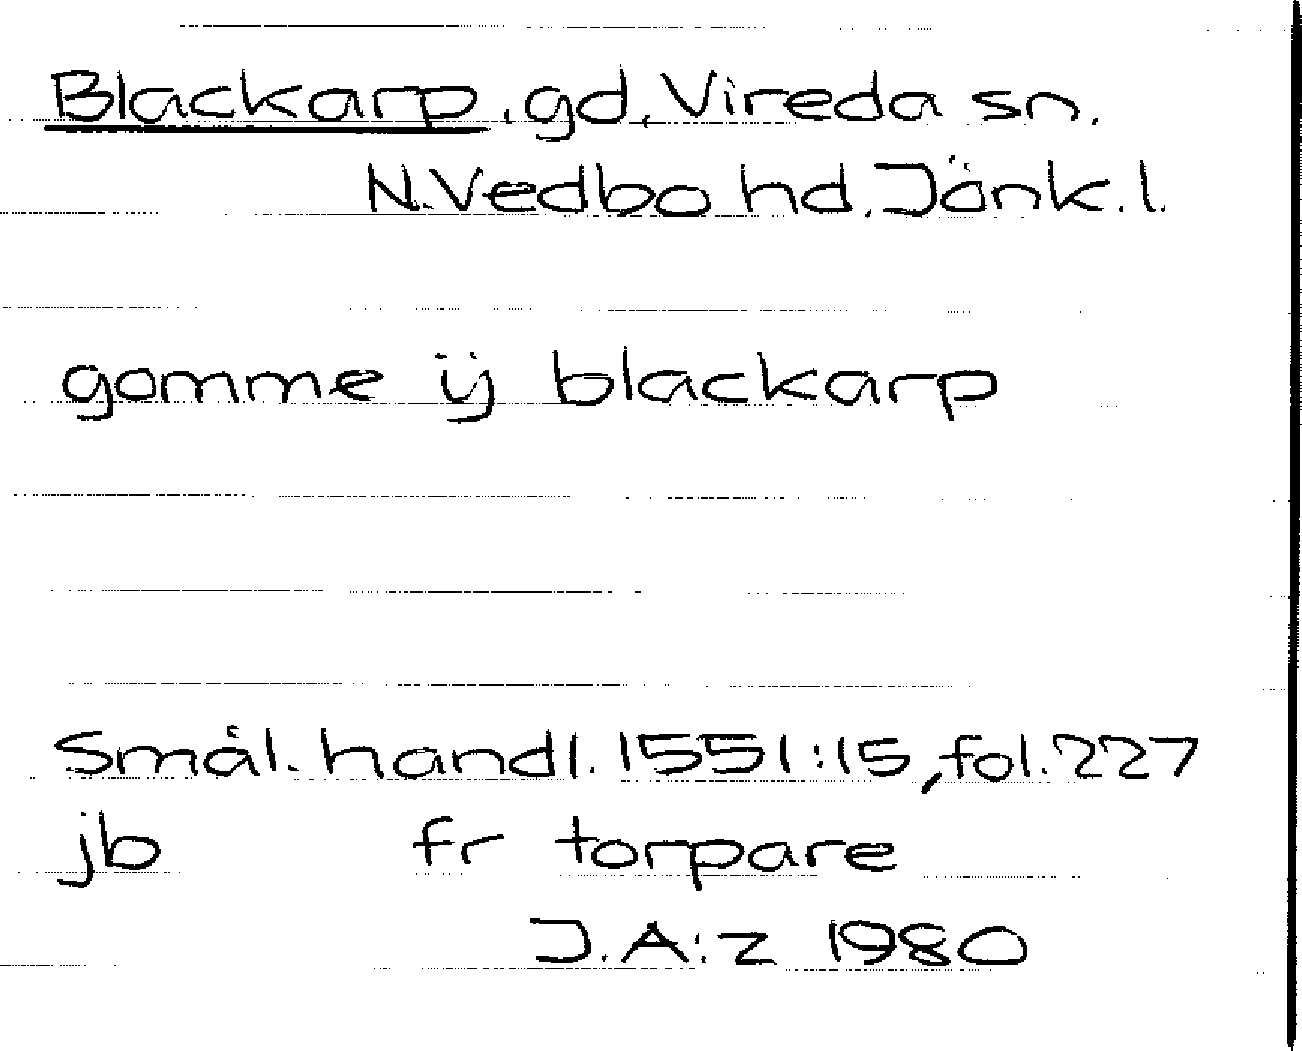 Blackarp, gd, Vireda sn.
N.Vedbo hd. Jönk. l.
gomme ij blackarp
Smål. handl. 1551:15, fol. 227
jb fr torpare
J.A:z 1980